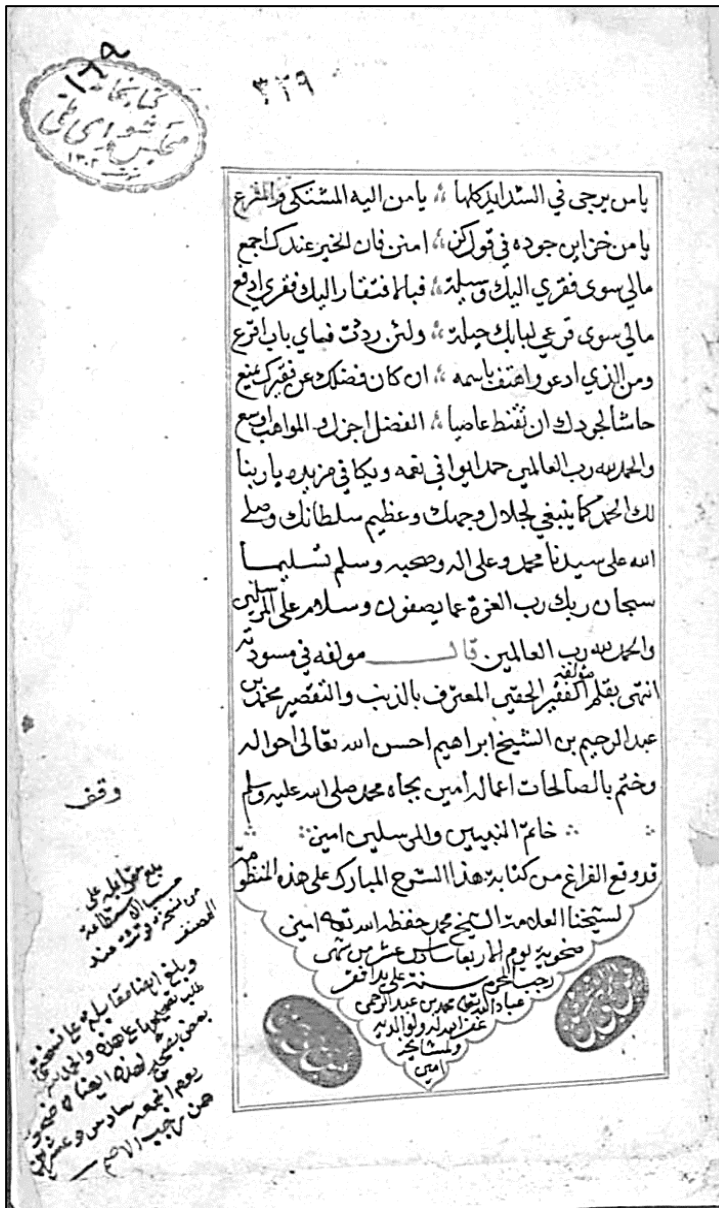 ٣٢٩
كتابخانه
مجلس شورای ملی
١٣٠٢
يا من يرجى في الشدايد كلها ؛؛ يا من اليه المشتكى والمفزع
يا من خزاين جوده في قول كن ؛؛ امنن فان الخير عندك اجمع
مالي سوى فقري اليك وسيلة ؛؛ فبالافتقار اليك فقري ادفع
مالي سوى قرعي لبابك حيلة ؛؛ ولئن رددت فماي باب اقرع
ومن الذي ادعو واهتف باسمه ؛؛ ان كان فضلك عن فقيرك يمنع
حاشا لجودك ان تقنط عاصيا ؛؛ الفضل اجزل والمواهب اوسع
والحمد لله رب العالمين حمدا يوافي نعمه ويكافي مزيده يا ربنا
لك الحمد كما ينبغي لجلال وجهك وعظيم سلطانك وصلى
الله على سيدنا محمد وعلى اله وصحبه وسلم تسليما
سبحان ربك رب العزة عما يصفون وسلام على المرسلين
والحمد لله رب العالمين قال مولفه في مسودته
انتهى بقلم مؤلفه الفقير الحقير المعترف بالذنب والتقصير محمد بن
عبد الرحيم بن الشيخ ابراهيم احسن الله تعالى احواله
وختم بالصالحات اعماله امين بجاه محمد صلى الله عليه وسلم
خاتم النبيين والمرسلين امين
قد وقع الفراغ من كتابة هذا الشرح المبارك على هذه المنظومة
لشيخنا العلامة الشيخ محمد حفظه الله تعه امين
ضحوية يوم الاربعا سادس عشر من شهر
رجب المحرم سنة على يد افقر
عباد الله تعالى محمد بن عبد الرحمن
غفر الله له ولوالديه
ولمشايخه
امين
وقف
بلغ مقابلة على
حسب الاستطاعة
من نسخة قرئت عند
المصنف
وبلغ ايضا مقابلة على نسخة
يوم الجمعه سادس وعشرين
من رجب الاصم